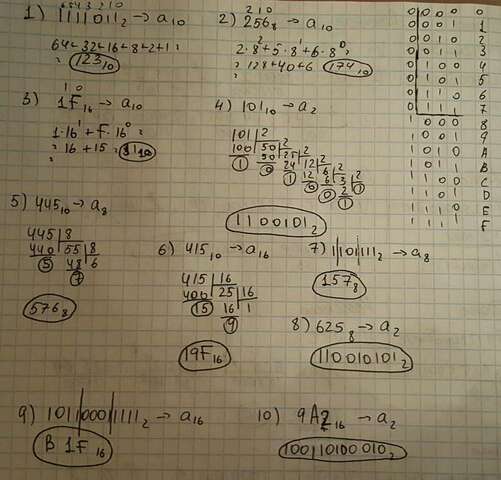 6 5 4 3 2 1 0
1) 1111011₂ → a₁₀
64+32+16+8+2+1 =
= 123₁₀
2 1 0
2) 256₈ → a₁₀
2·8²+5·8¹+6·8⁰ =
= 128+40+6 = 174₁₀
1 0
3) 1F₁₆ → a₁₀
1·16¹+F·16⁰ =
= 16+15 = 31₁₀
4) 101₁₀ → a₂
101 2
100 50 2
1 50 25 2
0 24 12 2
1 12 6 2
0 6 3 2
0 2 1
1
1100101₂
5) 445₁₀ → a₈
445 8
440 55 8
5 48 6
7
576₈
6) 415₁₀ → a₁₆
415 16
400 25 16
15 16 1
9
19F₁₆
7) 1|101|111₂ → a₈
157₈
8) 625₈ → a₂
110010101₂
9) 1011|0001|1111₂ → a₁₆
B 1F₁₆
10) 9A2₁₆ → a₂
100110100010₂
0 0 0 0
0 0 0 1 1
0 0 1 0 2
0 0 1 1 3
0 1 0 0 4
0 1 0 1 5
0 1 1 0 6
0 1 1 1 7
1 0 0 0 8
1 0 0 1 9
1 0 1 0 A
1 0 1 1 B
1 1 0 0 C
1 1 0 1 D
1 1 1 0 E
1 1 1 1 F